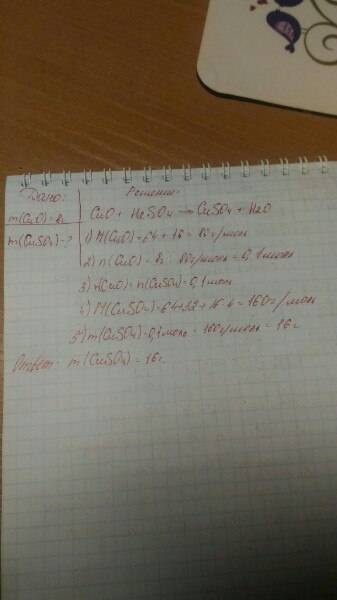 Дано:
Решение.
m(CuO) = 8г
CuO + H2SO4 → CuSO4 + H2O
m(CuSO4) - ?
1) M(CuO) = 64 + 16 = 80г/моль
2) n(CuO) = 8г : 80г/моль = 0,1моль
3) n(CuO) = n(CuSO4) = 0,1моль
4) M(CuSO4) = 64 + 32 + 16·4 = 160г/моль
5) m(CuSO4) = 0,1моль · 160г/моль = 16г
Ответ: m(CuSO4) = 16г